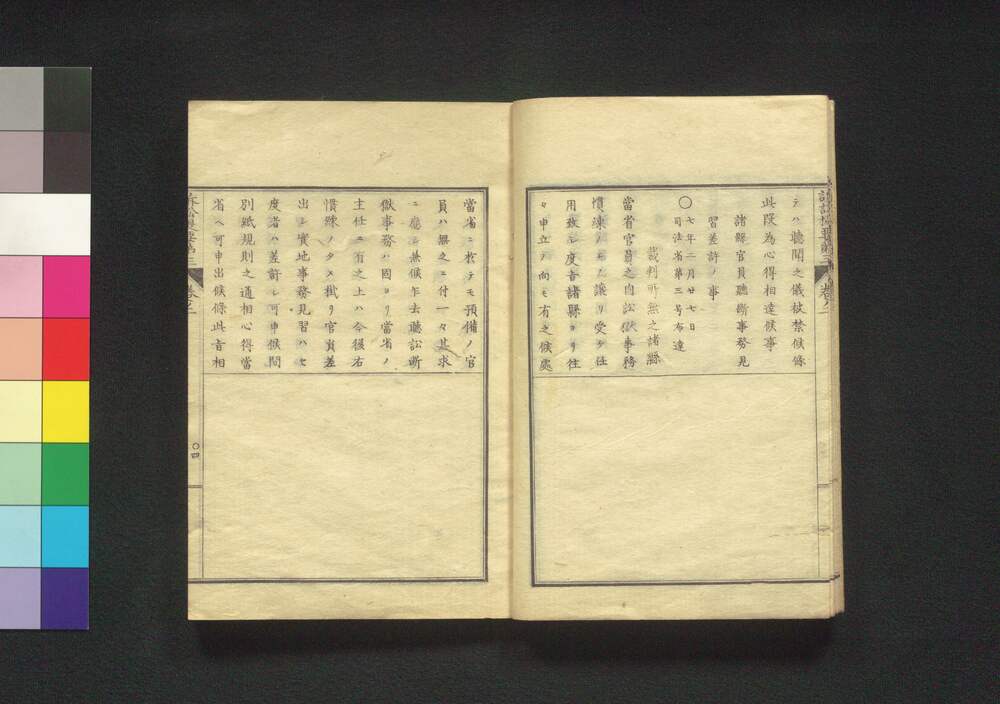 テハ聽聞之儀被禁候條
此段為心得相達候事
諸縣官員聽斷事務見
習差許ノ事
〇七年二月廿七日
司法省第三号布達
裁判所無之諸縣
當省官員之内訟獄事務
慣練ノ者ニ讓リ受ケ仕
用致シ度旨諸縣ヨリ往
々申立ノ向モ有之候處
當省ニ於テモ預備ノ官
員ハ無之ニ付一々其求
ニ應シ兼候乍去聽訟斷
獄事務ハ固ヨリ當省ノ
主任ニ有之上ハ今後右
慣練ノタメ掾リ官員差
出シ實地事務見習ハセ
度者ハ差許シ可申候間
別紙規則之通相心得當
省ヘ可申出候條此旨相
卷之二
〇四